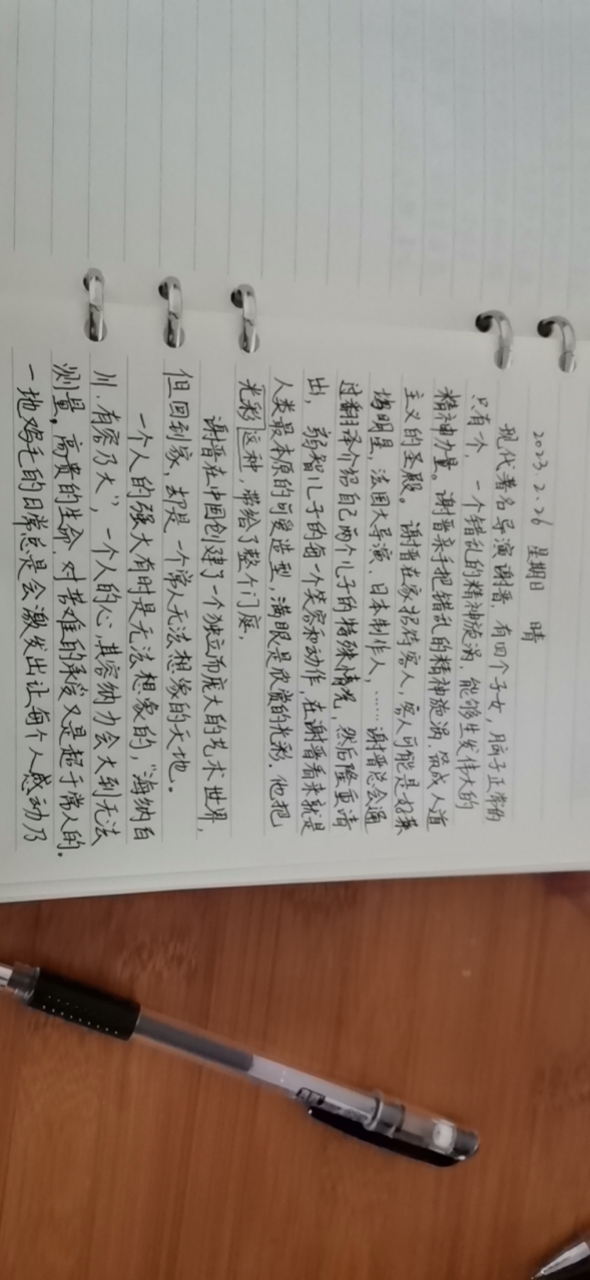 2023.2.26 星期日 晴
现代著名导演谢晋,有四个子女,脑子正常的
只有一个,一个错乱的精神旋涡,能够生发伟大的
精神力量。谢晋亲手把错乱的精神旋涡,筑成人道
主义的圣殿。谢晋在家招待客人,客人可能是好莱
坞明星,法国大导演、日本制作人,……谢晋总会通
过翻译介绍自己两个儿子的特殊情况,然后隆重请
出,弱智儿子的每一个笑容和动作,在谢晋看来就是
人类最本原的可爱造型,满眼是欣赏的光彩,他把
光彩这种,带给了整个门庭,
谢晋在中国创建了一个独立而庞大的艺术世界,
但回到家,却是一个常人无法想象的天地。
一个人的强大有时是无法想象的,“海纳百
川,有容乃大”,一个人的心,其容纳力会大到无法
测量。高贵的生命,对苦难的承受又是超于常人的。
一地鸡毛的日常总是会激发出让每个人感动乃